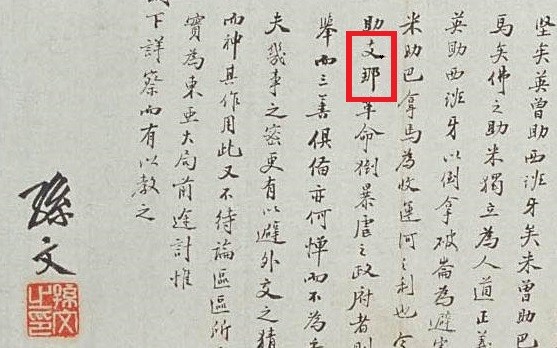 堅矣英曾助西班牙矣米曾助巴
馬矣佛之助米獨立為人道正義
英助西班牙以倒拿破崙為避害
米助巴拿馬為收運河之利也
助支那革命倒暴虐之政府者則
舉而三善俱備亦何憚而不為之
夫幾事之密更有以避外交之猜
而神其作用此又不待論區區所
實為東亞大局前途計惟
下詳察而有以教之
孫文
孫文之印